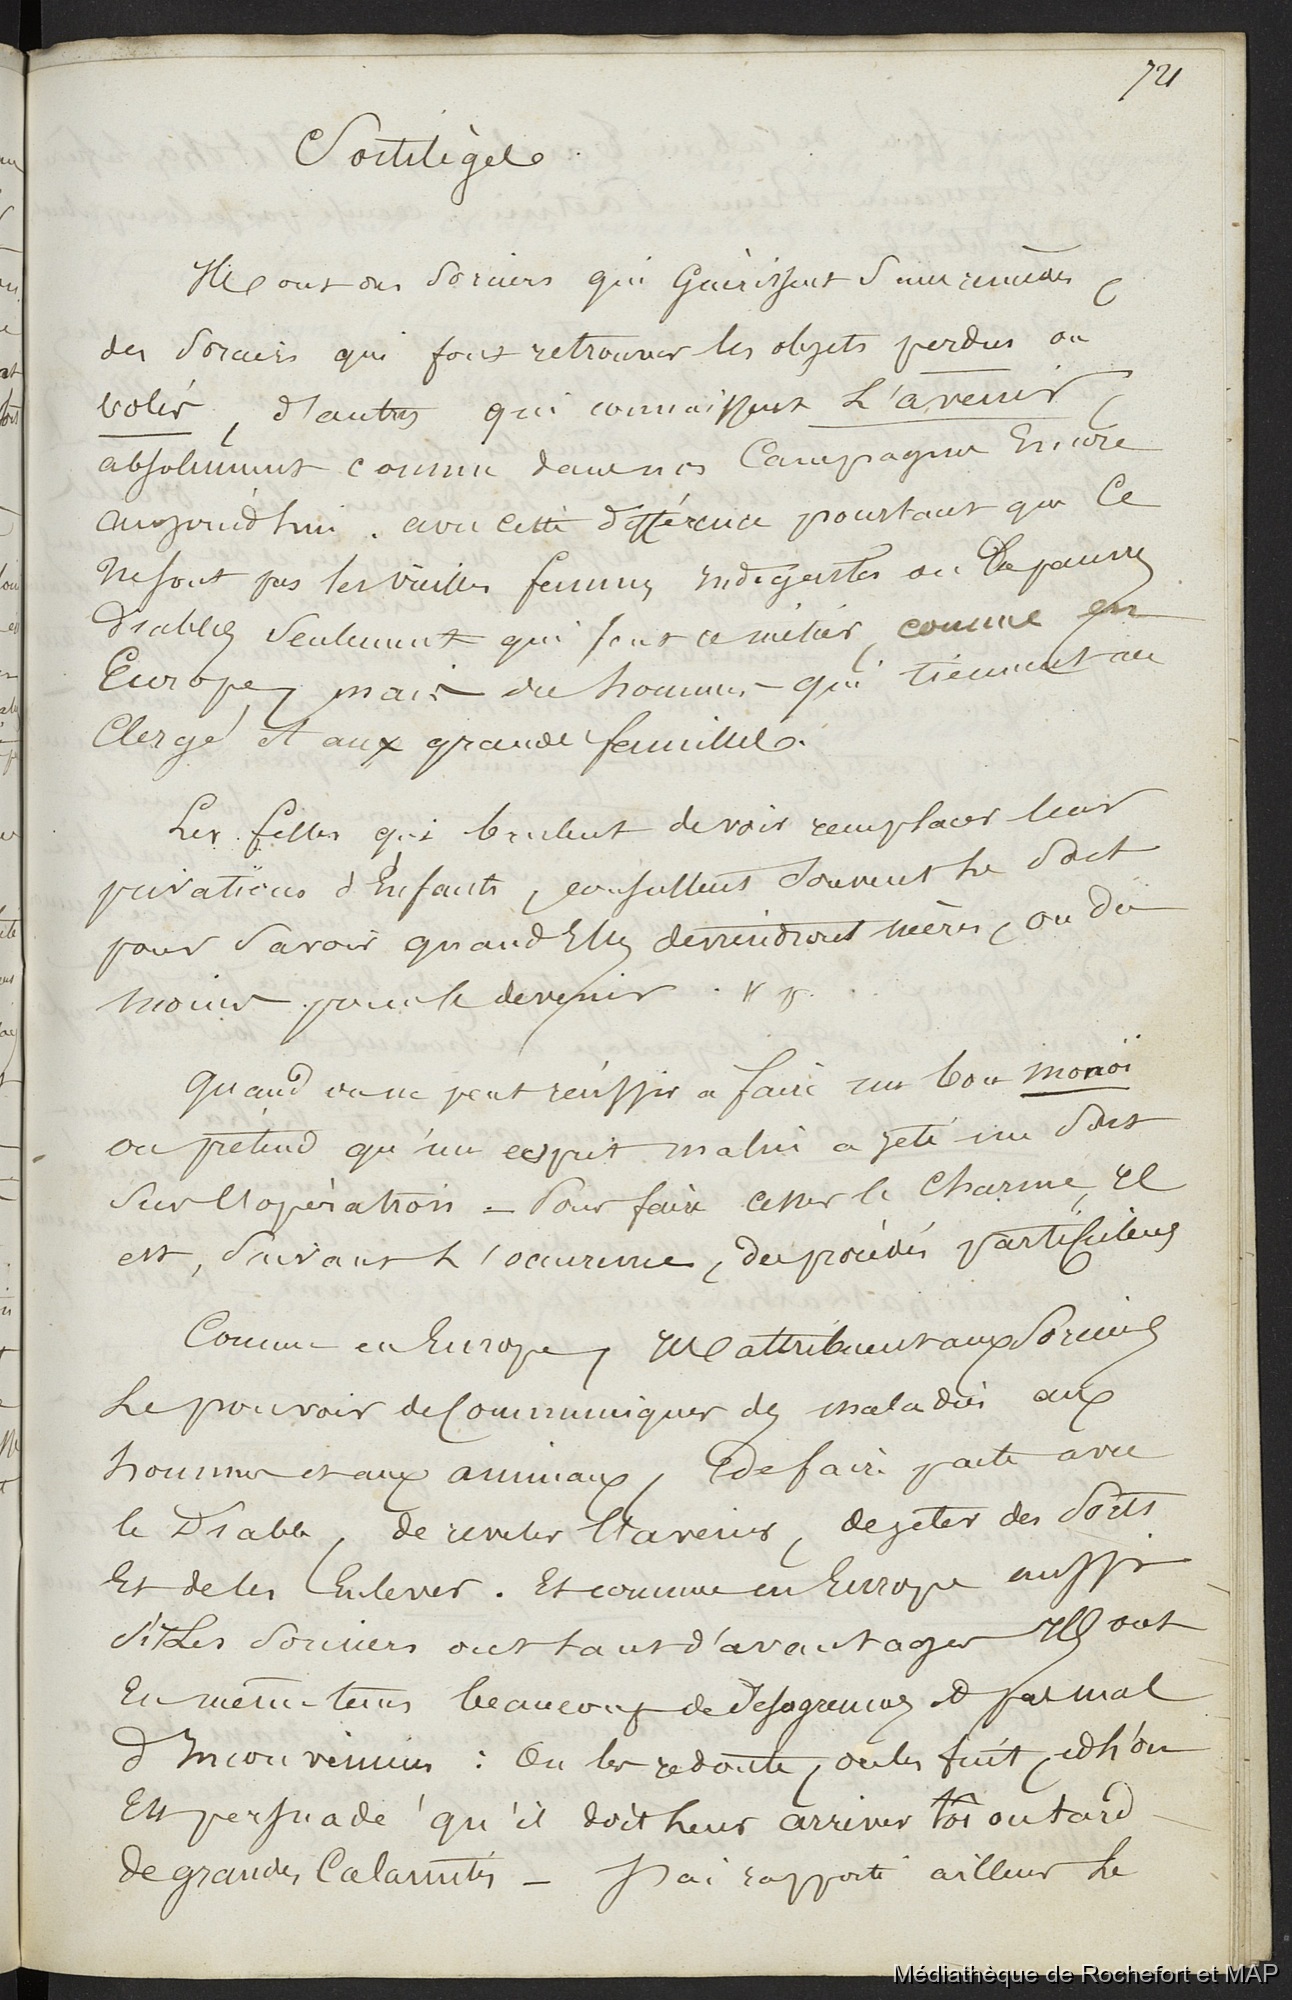 721
Sortilèges.
Ils ont des sorciers qui Guérissent sans remèdes,
des sorciers qui font retrouver les objets perdus ou
volés, d'autres qui connaissent L'avenir,
absolument comme dans nos Campagnes Encore
aujourd'hui. avec cette différence pourtant que Ce
ne sont pas les vieilles femmes indigentes ou de pauvres
Diables seulement qui font ce métier, comme en
Europe, mais des hommes qui tiennent au
Clergé et aux grandes familles.
Les filles qui brulent de voir remplacer leur
privations d'Enfants, consultent souvent le Sort
pour savoir quand Elles deviendront mères, ou du
moins pour le devenir.
Quand on ne peut réussir a faire un bon monoï
on prétend qu'un esprit malin a jeté un Sort
Sur l'opération – Pour faire cesser le Charme, Il
est, suivant L'occurence, des procédés particuliers
Comme en Europe, Ils attribuent aux Sorciers
Le pouvoir de Communiquer des maladies aux
hommes et aux animaux, de faire pacte avec
le Diable, de reveler l'avenir, de jeter des Sorts
Et de les Enlever. Et comme en Europe aussi
si Les sorciers ont tant d'avantages Ils ont
En même tems beaucoup de Désagremens et pas mal
d'Inconvéniens : On les redoute, on les fuit, et L'on
Est persuadé qu'il doit leur arriver tôt ou tard
de grandes Calamités – J'ai rapporté ailleurs Le
Médiathèque de Rochefort et MAP